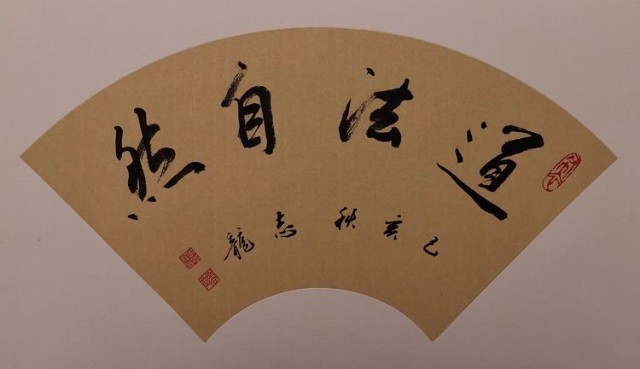 道法自然
己亥秋志龍